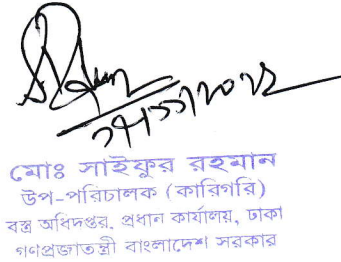 মোঃ সাইফুর রহমান
উপ-পরিচালক (কারিগরি)
বস্ত্র অধিদপ্তর, প্রধান কার্যালয়, ঢাকা
গণপ্রজাতন্ত্রী বাংলাদেশ সরকার